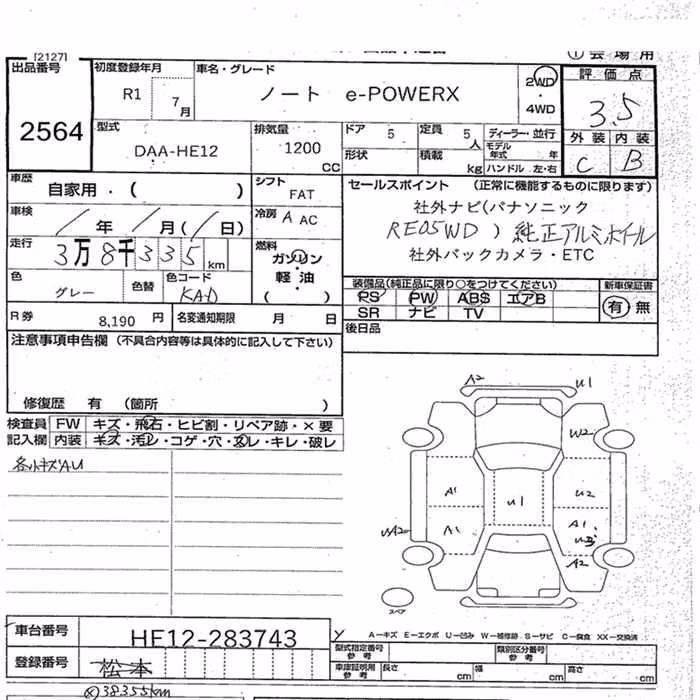 [2127]
① 会場用
出品番号
2564
初度登録年月
R1 7月
車名・グレード
ノート e-POWERX
2WD
・
4WD
評価点
3.5
外装 内装
C B
型式
DAA-HE12
排気量
1200
CC
ドア 5
定員 5人
ディーラー・並行
形状
積載 kg
モデル年式 年
ハンドル 左・右
車歴
自家用・( )
シフト
FAT
セールスポイント (正常に機能するものに限ります)
社外ナビ(パナソニック
RE05WD ) 純正アルミホイール
社外バックカメラ・ETC
車検
/ 年 / 月( / 日)
冷房 A AC
走行
3万8千335km
燃料
ガソリン
軽・油
( )
色
グレー
色替
色コード
KAD
装備品(純正品に限り○をつけてください)
PS PW ABS エアB
SR ナビ TV
新車保証書
有・無
R券 8,190 円
名変通知期限 月 日
後日品
注意事項申告欄 (不具合内容等は具体的に記入して下さい)
修復歴 有 (箇所 )
検査員記入欄
FW キズ・飛石・ヒビ割・リペア跡・×要
内装 キズ・汚レ・コゲ・穴・スレ・キレ・破レ
各小キズAU
A2
U1
W2
A1
U1
U2
UA2
A1
A1
A2
スペア
A−キズ E−エクボ U−凹み W−補修跡 S−サビ C−腐食 XX−交換済
車台番号
HE12-283743
登録番号
松本
型式指定番号
参考
類別区分番号
参考
車庫証明用
参考
長さ cm
幅 cm
高さ cm
38355km